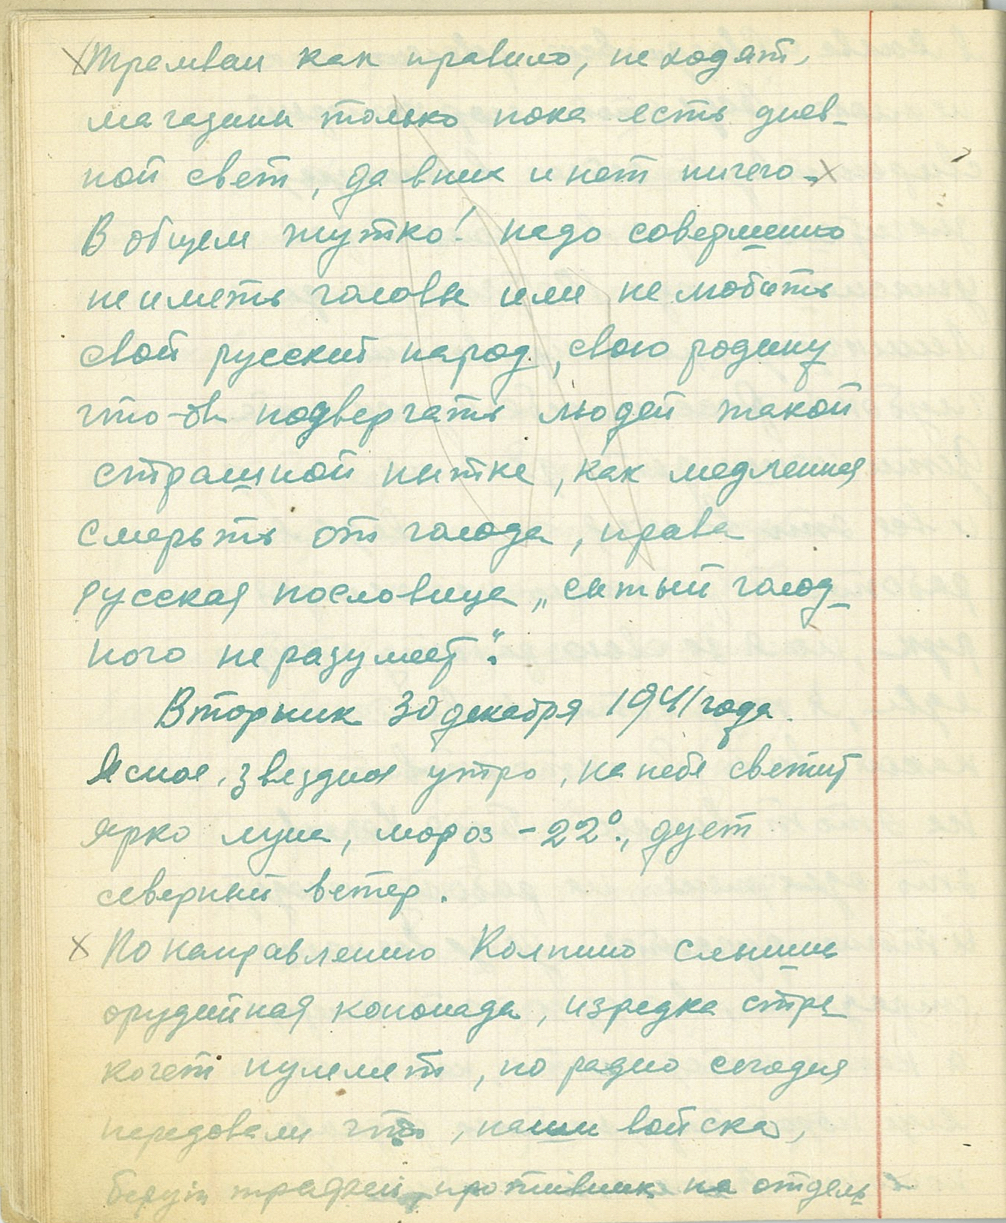 Трамваи как правило, не ходят,
магазины только пока есть днев-
ной свет, да в них и нет ничего.
В общем жутко! надо совершенно
не иметь головы или не любить
свой русский народ, свою родину
что-бы подвергать людей такой
страшной пытке, как медленная
смерьть от голода, права
русская пословица „сытый голод-
ного не разумеет“.
Вторник 30 декабря 1941 года.
Ясное, звездное утро, на небе светит
ярко луна, мороз -22°, дует
северный ветер.
По направлению Колпино слышна
орудийная кононада, изредка стре-
кочет пулемет, по радио сегодня
передовали что, наши войска,
берут трафеи, противник на отдель